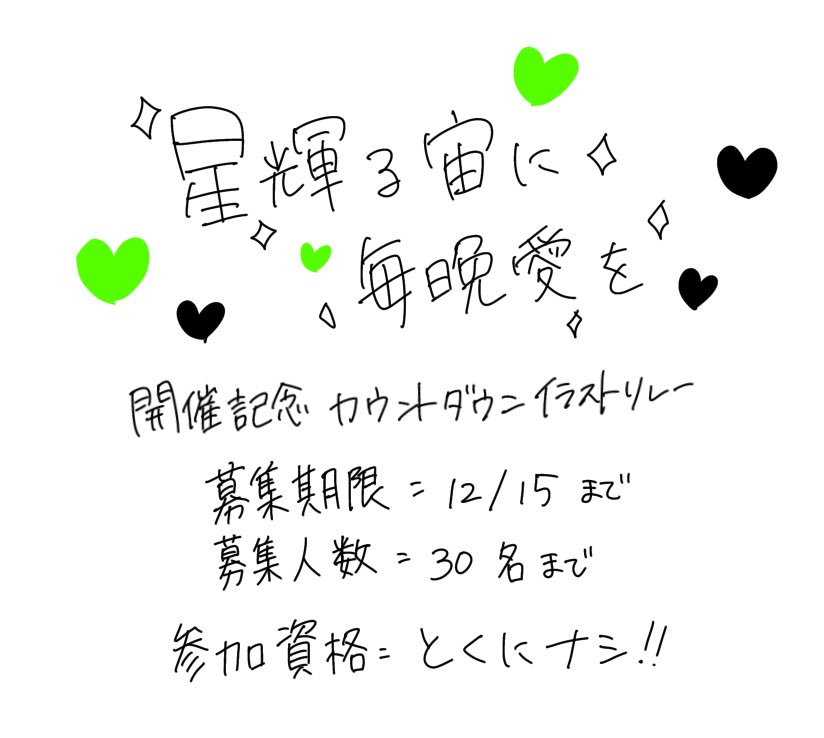 星輝る宙に
毎晩愛を
開催記念 カウントダウンイラストリレー
募集期限=12/15 まで
募集人数=30 名まで
参加資格=とくにナシ!!